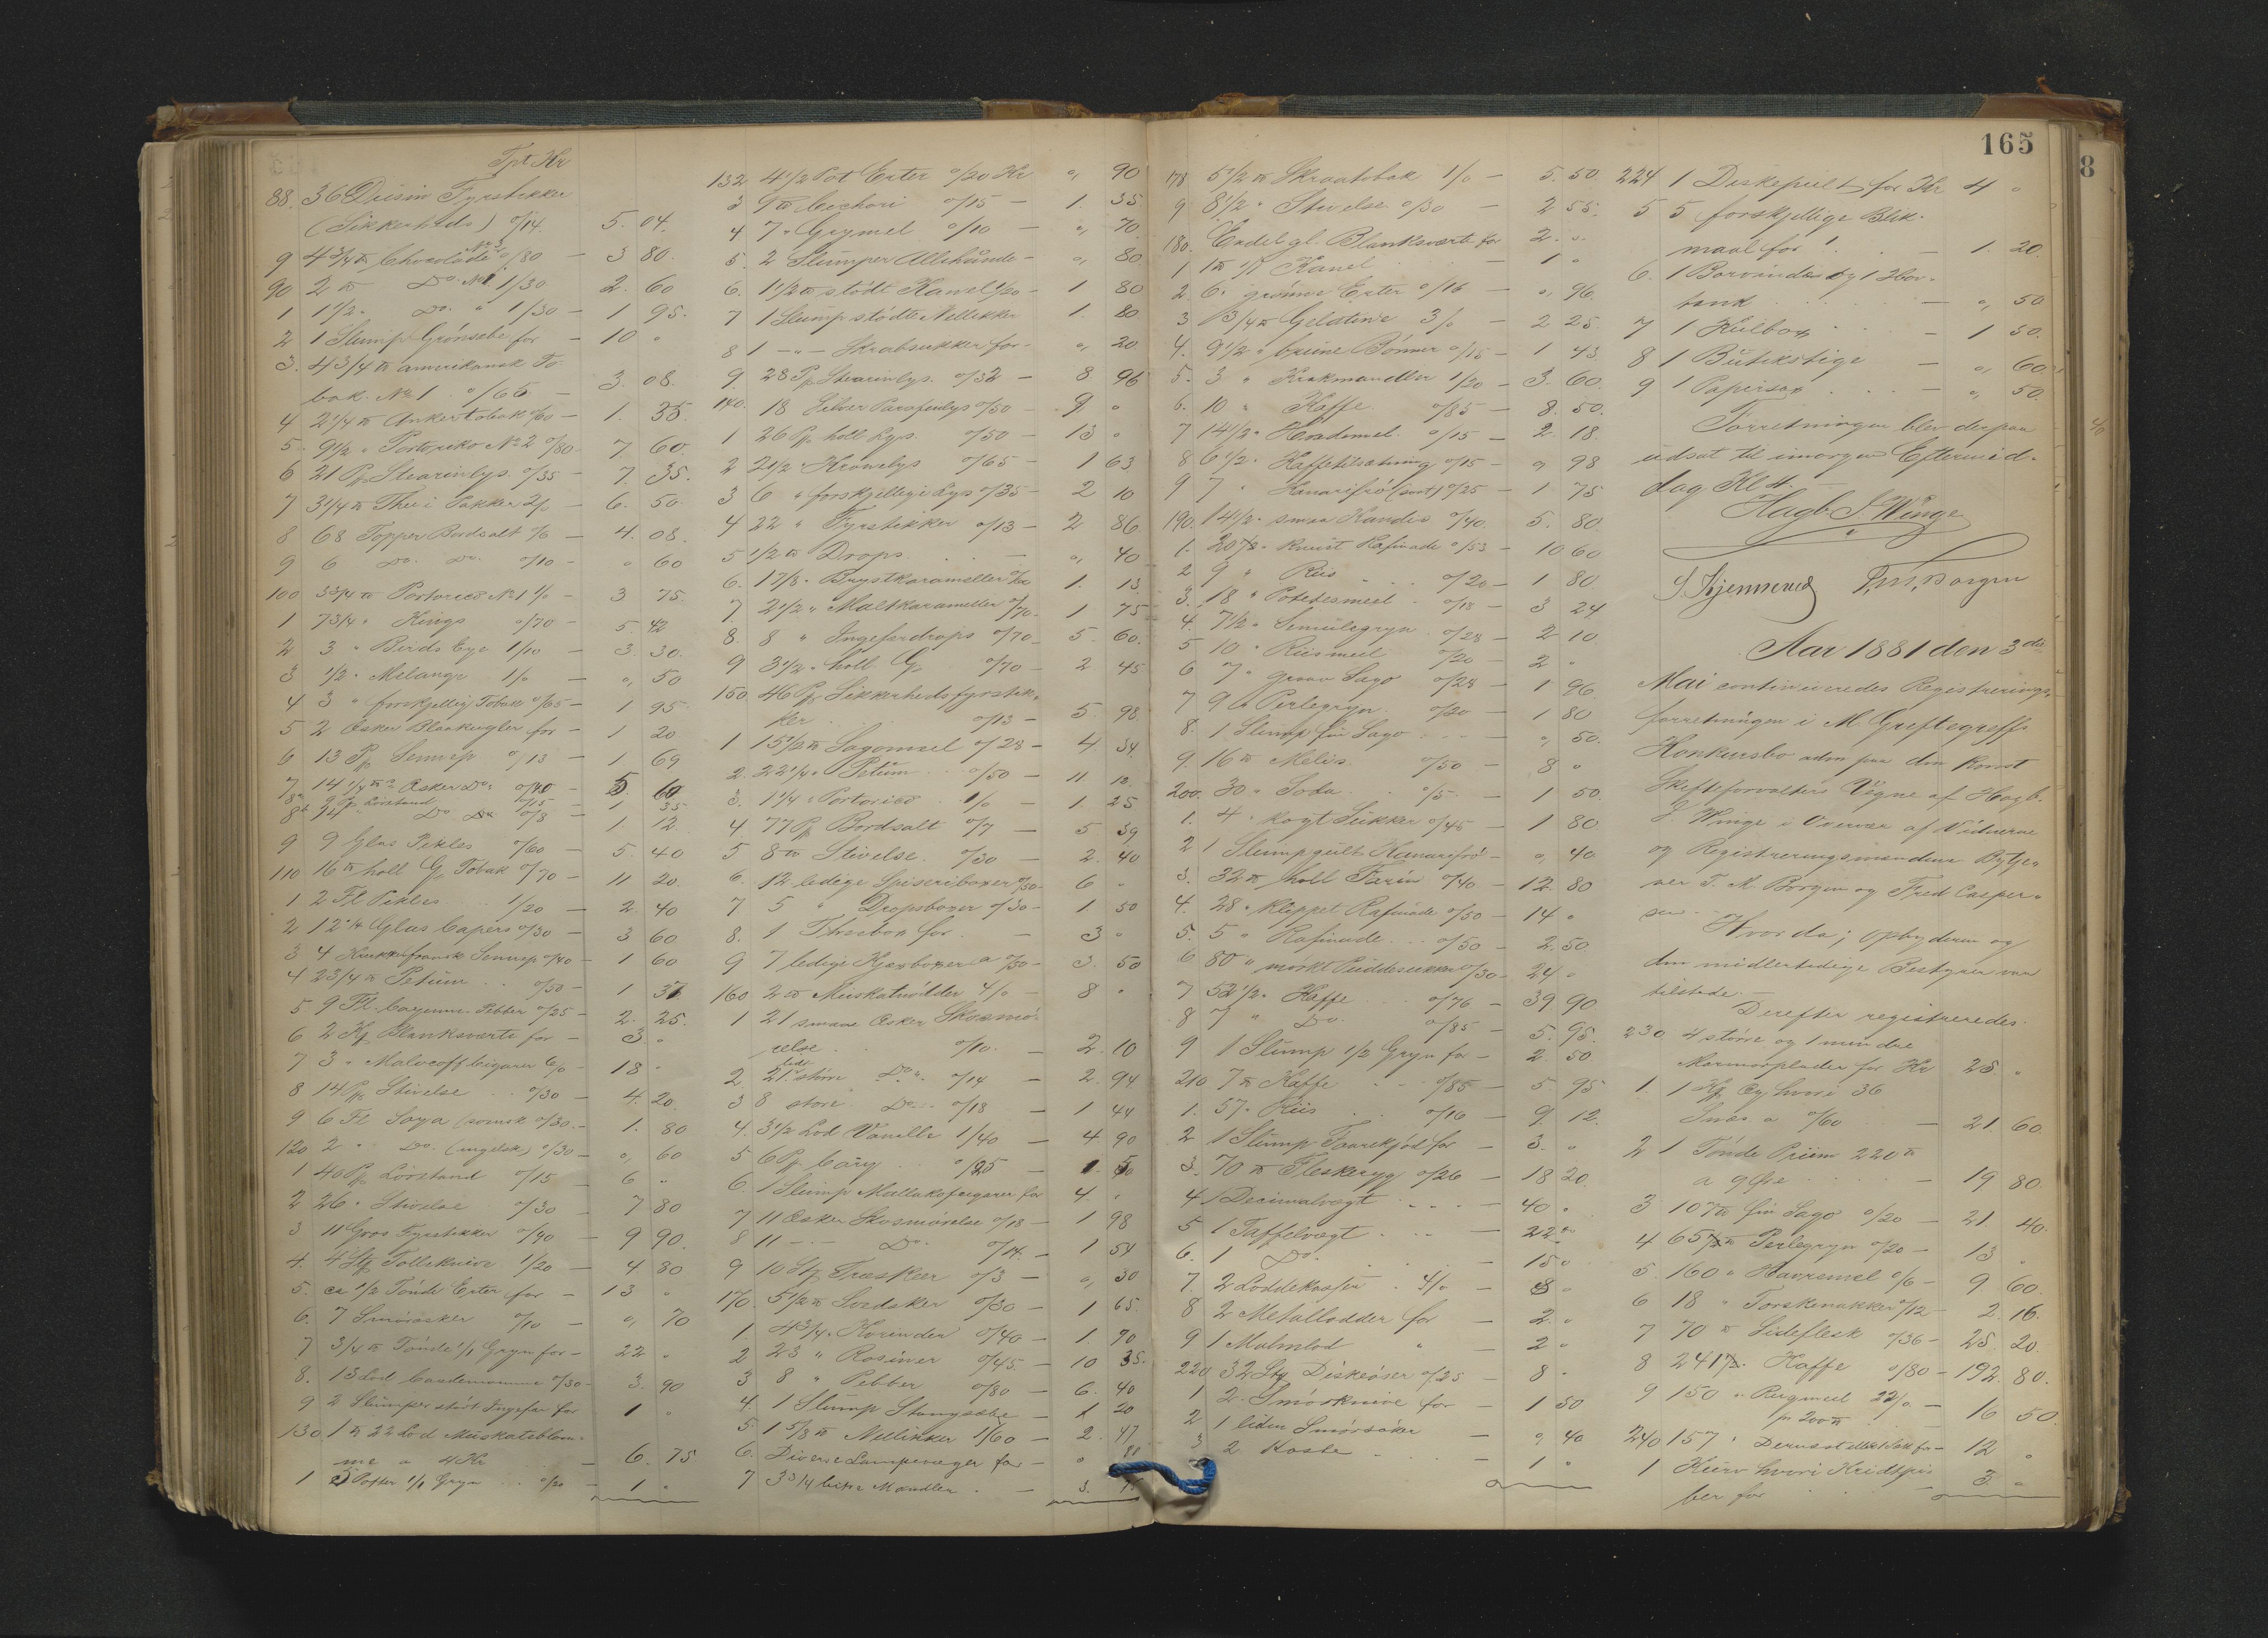 Tpt Kr
88. 36 Dusin Fyrstikker
(Sikkerheds) o/14. 5. 04.
9 4 3/4 ℔ Chocolade No 3 o/80 — 3 80.
90 2 ℔ Do. No 1 1/30 2. 60
1 1 1/2 " Do. " 1/30 — 1 95.
2 1 Slump Grönsæbe for — 10 "
3. 4 3/4 ℔ amerikansk To-
bak No 1 o/65 — 3. 08.
4 2 1/4 ℔ Ankertobak o/60 — 1. 35
5. 9 1/2 " Portoriko No 2 o/80 7. 60.
6 21 Pk Stearinlys o/35 — 7. 35.
7 3 1/4 ℔ The i Pakker 2/o — 6. 50.
8 68 Topper Bordsalt o/6 — 4. 08.
9 6 Do. Do. o/10 — " 60
100 3 3/4 ℔ Portorico No 1 1/o — 3 75.
1 7 3/4 " Kings o/70 — 5. 42
2 3 " Birds Eye 1/10 — 3. 30.
3 1/2 " Melange 1/o — o, 50
4 3 " forskjellig Tobak o/65 — 1 95
5 2 Æsker Blaakugler for — 1 20
6 13 Pk Sennep o/13 — 1 69
7 14 1/4 ℔ Æsker Do. o/40 — 5. 60
8a 9 Pk Lövstand o/15 — 1 35
8b 14 " Do Do o/8 — 1. 12
9 9 Glas Pikles o/60 — 5. 40
110 16 ℔ holl G. Tobak o/70 — 11 20.
1 2 Fl Pikles 1/20 — 2. 40
2 12 1/4 Glas Capers o/30 — 3 60
3 4 Krukker fransk Sennep o/40 — 1 60
4 2 3/4 ℔ Petum . . o/50 — 1 37
5 9 Fl. Cayenne Pebber o/25 — 2. 25.
6 2 Kg Blanksværte for — 3. "
7 3 " Malacoff Cigarer 6/o — 18 "
8 14 Pk Stivelse . . o/30 — 4. 20.
9 6 Fl Soya (norsk o/30. — 1. 80
120 2 " Do. (engelsk) o/30 — o, 60
1 40 Pk Lövstand o/15 — 6 "
2 26 " Stivelse o/30 — 7 80
3 11 Gros Fyrstikker o/90 — 9 90.
4. 4 Stk Tolleknive 1/20 — 4 80
5. ca 1/2 Tönde Erter for — 13 "
6. 7 Smöræsker o/10 — o, 70
7 3/4 ℔ Tönde 1/1 Gryn for — 22 "
8. 13 Lod Cardemomme o/30 — 3. 90
9 2 Slumper stödt Ingefær for 1 "
130 1 ℔ 22 Lod Muskatsblom-
me a 4 Kr . . . — 6. 75
1 5 Potter 1/1 Gryn . . o/20 — 1 "
132 4 1/2 Pot Erter o/20 Kr o, 90
3 9 ℔ Cichori o/15 — 1. 35
4 7 " Grymel o/10 — o, 70
5. 2 Slumper Allehaande — o, 80
6. 1 1/2 ℔ stödt Kanel 1/20 — 1 80
7 1 Slump stödte Nellikker 1. 80
8 1 —"— Skrabsukker for — o, 20
9. 28 Pk Stearinlys. o/32 — 8 96
140. 18 " Silver Parafinlys o/50 — 9 "
1 26 Pk holl Lys. o/50 — 13 "
2 2 1/2 " Kronelys o/65 — 1 63.
3 6 " forskjellige Lys o/35 — 2 10
4 22 " Fyrstikker o/13 — 2 86
5 1/2 ℔ Drops . . . — o, 40
6. 1 7/8 " Brystkarameller o/60 1. 13
7 2 1/2 " Maltkarameller o/70 — 1 75
8. 8 " Ingeferdrops o/70 — 5. 60.
9 3 1/2 " holl G. o/70 — 2 45
150. 46 Pk Sikkerhedsfyrstik-
ker . . . o/13 — 5. 98
1 15 1/2 ℔ Sagomel o/28 — 4. 34
2. 22 1/4 " Petum . . o/50 — 11 12.
3. 1 1/4 " Portorico . 1/o — 1. 25
4 77 Pk Bordsalt o/7 — 5 39
5 8 ℔ Stivelse. o/30 — 2. 40
6. 12 ledige Spiseriboxer o/50 — 6 "
7 5 " Dropsboxer o/30 — 1. 50
8. 1 Thebox for . . — 3 "
9 7 ledige Kjæxboxer a o/50 — 3. 50
160 2 ℔ Muskatnödder 4/o — 8 "
1 21 smaae Æsker Skosmö-
relse . . o/10. — 2. 10
2 21 lidt större Do. o/14 — 2. 94
3 8 store Do. o/18 — 1 44
4. 3 1/2 Lod Vanille 1/40 — 4 90
5 6 Pk Cary . . o/25 — 1. 50
6. 1 Slump Mallakofcigarer for 4. "
7 11 Æsker Skosmörelse o/18 — 1 98
8 11 —"— Do. o/14. — 1 54
9 10 Stk Træskeer o/3 — o, 30
170. 5 1/2 ℔ Svedsker o/30 — 1 65.
1. 4 3/4 " Korender o/40 — 1. 90
2 23 " Rosiner o/45 — 10 35.
3 8 " Pebber o/80 — 6. 40
4. 1 Slump Stangsæbe — 1 20
5. 1 5/8 ℔ Nellikker 1/60 — 2. 47
6. Diverse Lampevæger for — o 80
7 3 3/4 bitre Mandler . — 3.
165
178 5 1/2 ℔ Skraatobak 1/o — 5. 50.
9 8 1/2 " Stivelse o/30 — 2 55.
180. Endel gl. Blanksværte for 2. "
1 1 ℔ Kanel . . — 1 "
2. 6 " grönne Erter o/16 — o, 96
3 3/4 ℔ Gelatine 3/o — 2 25.
4. 9 1/2 " brune Bönner o/15 — 1 43
5. 3 " Krakmandler 1/20 — 3. 60.
6. 10 " Kaffe o/85 — 8. 50.
7 14 1/2 " Havremel o/15 — 2. 18.
8 6 1/2 " Kaffetilsætning o/15 — o, 98
9 7 " Kanarifrö (sort) o/25 — 1 75
190. 14 1/2 " smaa Kandis o/40. 5. 80.
1. 20 " knust Rafinade o/53 — 10 60
2 9 " Riis . . . o/20 — 1 80
3. 18 " Potetesmel . o/18 — 3 24
4. 7 1/2 " Semulegryn . o/28 — 2 10.
5 10 " Riismeel o/20 — 2 "
6 7 " graae Sago o/28 — 1 96.
7 9 " Perlegryn. o/20 — 1 80
8. 1 Slump fin Sago . . — o, 50.
9. 16 ℔ Melis. o/50 — 8 "
200. 30 " Soda . . o/5. — 1 50.
1. 4 " kogt Sukker o/45 — 1 80
2 1 Slump gult Kanarifrö — o, 40
3. 32 ℔ holl Farin o/40 — 12. 80
4. 28 " klippet Rafinade o/50 — 14 "
5. 5 " Rafinade . . o/50 — 2. 50
6 80 " mörkt Puddesukker o/30 — 24 "
7 52 1/2 " Kaffe . . o/76 — 39 90
8 7 " Do o/85 — 5. 95.
9 1 Slump 1/2 Gryn for — 2. 50.
210 7 ℔ Kaffe . . o/85 — 5. 95
1. 57 " Riis . . o/16 — 9. 12.
2 1 Slump Faarekjöd for — 3. "
3. 70 ℔ Fleskeryg o/26 — 18 20
4 1 Decimalvægt . . . — 40 "
5 1 Taffelvægt . . . — 22 "
6. 1 Do. . . — 15 "
7. 2 Loddekasser . 4/o — 8 "
8 2 Metallodder for — 2. "
9 1 Malmlod " — 2 "
220 32 Stk Diskeöser o/25 — 8 "
1 2 Smörknive for — 1 50
2 1 liden Smörsöker — o, 40
3 2 Koste . . . — 1 "
224 1 Diskepult for Kr 4 "
5 5 forskjellige Blik-
maal for . . — 1. 20.
6. 1 Borvinde og 1 Hov-
tand . . . — o, 50
7 1 Kulbox . . — 1 50.
8 1 Butikstige — o, 60
9 1 Papirsax . . . — o, 50
Forretningen blev derpaa
udsat til imorgen Eftermid-
dag Kl 4. —
Hagb. J. Winge
S. Kjennerud T. M. Borgen
Aar 1881 den 3die
Mai continueredes Registrerings-
forretningen i M. Greftegreffs
Konkursbo adm paa den konst
Skifteforvalters Vegne af Hagb.
J. Winge i Overvær af Vidnerne
og Registreringsmændene Bytje-
ner T. M. Borgen og Fred Casper-
sen.
Hvorda; Opbyderen og
den midlertidige Bestyrer var
tilstede. —
Derefter registreredes.
230 4 större og 1 mindre
Marmorplader for Kr 25 "
1. 1 Kg Eg hvori 36
Snes a o/60 — 21. 60.
2 1 Tönde Priim 220 ℔
a 9 Öre . . . — 19 80.
3 107 ℔ fin Sago o/20 — 21. 40.
4 65 ℔ Perlegryn o/20 — 13 "
5. 160 " Havremel o/6 — 9 60.
6 18 " Torskenakker o/12 — 2. 16.
7 70 ℔ Sideflesk o/36 — 25. 20.
8 241 " Kaffe o/80 — 192. 80.
9 150 " Rugmeel 22/o — 16 50.
pr 200 ℔
240 157 " Salt for — 12 "
1 Kurv hvori Kridtpi-
ber for . . . — 3. "